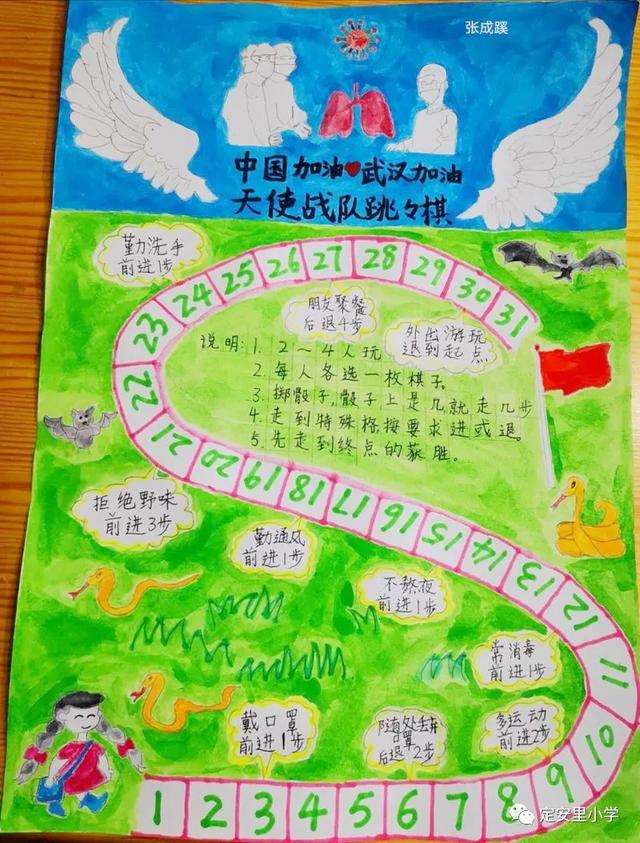 张成蹊
中国加油❤武汉加油
天使战队跳々棋
勤洗手
前进1步
朋友聚餐
后退4步
外出游玩
退到起点
说明:1. 2～4人玩。
2. 每人各选一枚棋子。
3. 掷骰子,骰子上是几就走几步
4. 走到特殊格按要求进或退。
5. 先走到终点的获胜。
拒绝野味
前进3步
勤通风
前进1步
不熬夜
前进1步
常消毒
前进1步
戴口罩
前进1步
随处丢弃
口罩
后退2步
多运动
前进2步
1 2 3 4 5 6 7 8 9 10 11 12 13 14 15 16 17 18 19 20 21 22 23 24 25 26 27 28 29 30 31
定安里小学